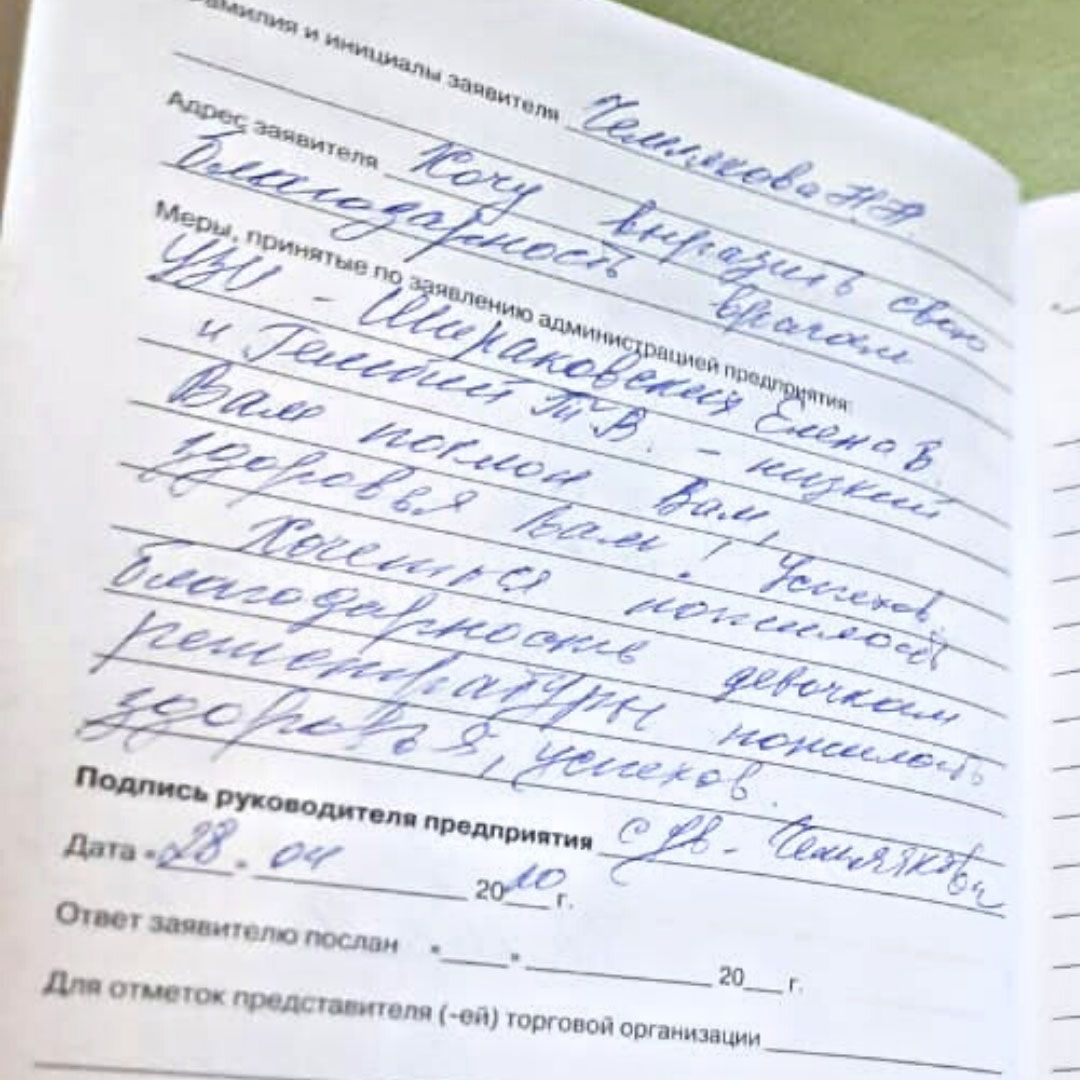 Фамилия и инициалы заявителя Чемлякова Н.А
Адрес заявителя Хочу выразить свою
благодарность врачам
Меры, принятые по заявлению администрацией предприятия:
УЗИ - Елена В.
и Т.В. - низкий
Вам поклон Вам,
здоровья Вам! Успехов.
Хочется пожелать
благодарность девочкам
регистратуры пожелать
здоровья, успехов.
Подпись руководителя предприятия с ув.
Дата "28" 04 20 г.
Ответ заявителю послан " " 20 г.
Для отметок представителя (-ей) торговой организации